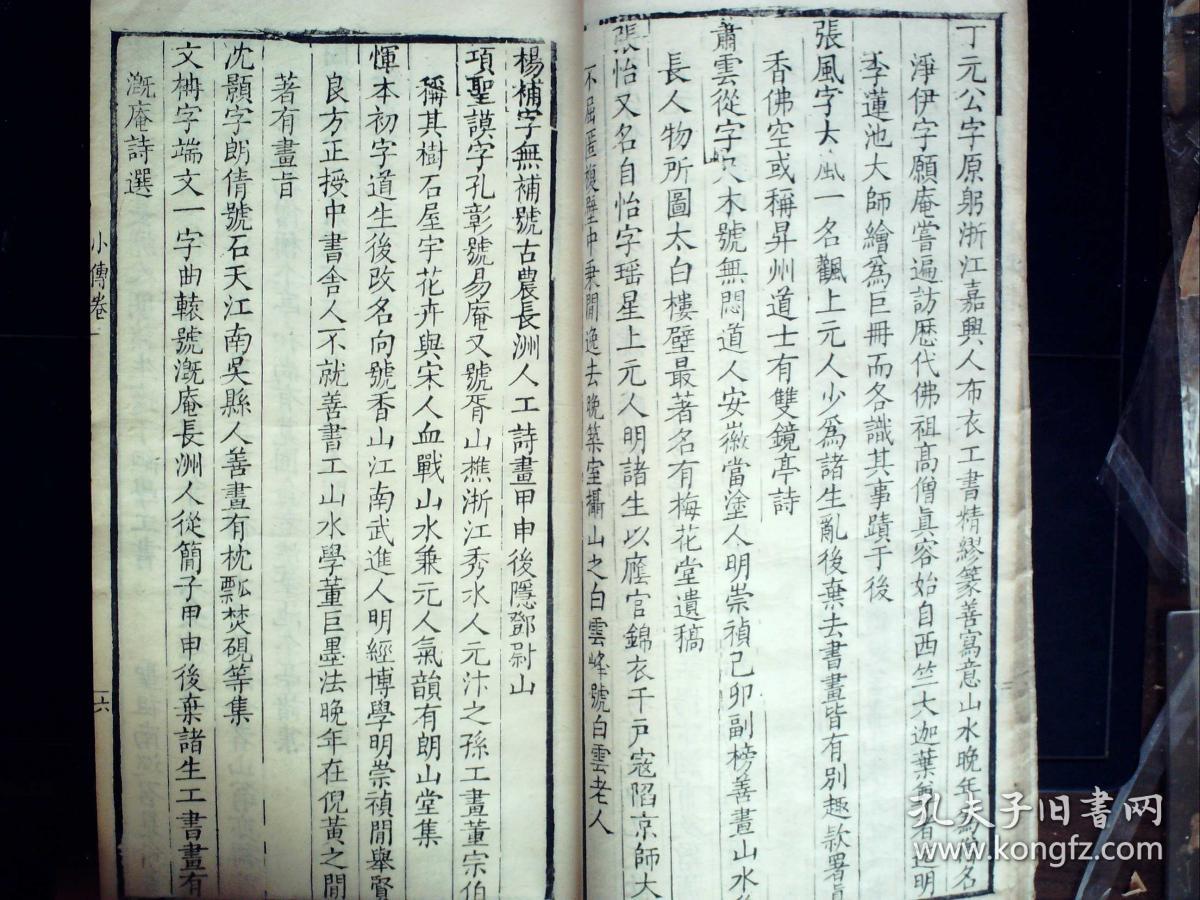 丁元公字原躬浙江嘉興人布衣工書精繆篆善寫意山水晚年為僧名
淨伊字願庵嘗遍訪歷代佛祖高僧眞容始自西竺大迦葉尊者迄明
李蓮池大師繪為巨冊而各識其事蹟于後
張風字大風一名飌上元人少為諸生亂後棄去書畫皆有別趣款署眞
香佛空或稱昇州道士有雙鏡亭詩
蕭雲從字尺木號無悶道人安徽當塗人明崇禎己卯副榜善畫山水
長人物所圖太白樓壁最著名有梅花堂遺稿
張怡又名自怡字瑶星上元人明諸生以廕官錦衣千戶寇陷京師大
不屈匿複壁中乗間逸去晚築室攝山之白雲峰號白雲老人
楊補字無補號古農長洲人工詩畫甲申後隱鄧尉山
項聖謨字孔彰號易庵又號胥山樵浙江秀水人元汴之孫工畫董宗伯
稱其樹石屋宇花卉與宋人血戰山水兼元人氣韻有朗山堂集
惲本初字道生後改名向號香山江南武進人明經博學明崇禎間舉賢
良方正授中書舍人不就善書工山水學董巨墨法晚年在倪黃之間
著有畫旨
沈顥字朗倩號石天江南吳縣人善畫有枕瓢焚硯等集
文柟字端文一字曲轅號溉庵長洲人從簡子甲申後棄諸生工書畫有
溉庵詩選
小傳卷一
六
孔夫子旧書网
www.kongfz.com